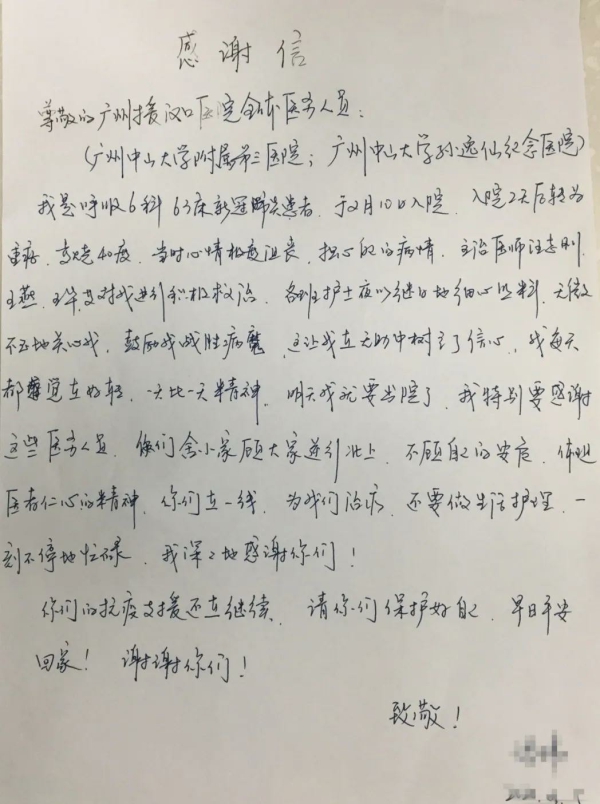 感谢信
尊敬的广州援汉口医院全体医务人员：
（广州中山大学附属第三医院；广州中山大学孙逸仙纪念医院）
我是呼吸6科63床新冠肺炎患者，于2月10日入院，入院2天后转为
重症，高烧40度，当时心情极度沮丧，担心自己的病情，主治医师汪志刚、
王燕、王华、艾对我进行积极救治，各班护士夜以继日地细心照料，无微
不至地关心我，鼓励我战胜病魔，这让我在无助中树立了信心，我每天
都感觉在好转，一天比一天精神，明天我就要出院了，我特别要感谢
这些医务人员，你们舍小家顾大家逆行北上，不顾自己的安危，体现
医者仁心的精神，你们在一线，为我们治病，还要做生活护理，一
刻不停地忙碌，我深深地感谢你们！
你们的抗疫支援还在继续，请你们保护好自己，早日平安
回家！谢谢你们！
致敬！